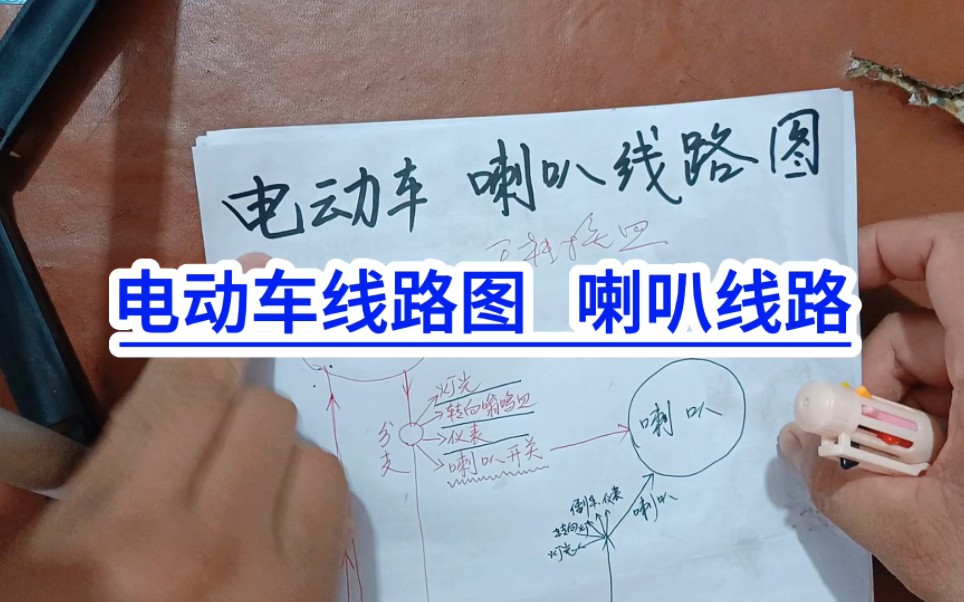 电动车 喇叭线路图
电动车线路图 喇叭线路
灯光
转向嗡鸣器
仪表
喇叭开关
分支
喇叭
喇叭
仪表
转向灯
灯光